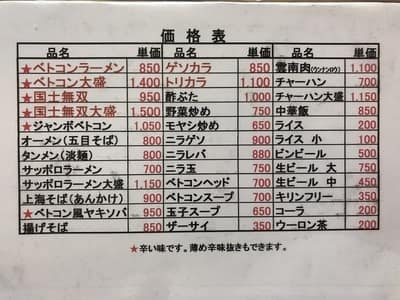 価格表
品名 単価 品名 単価 品名 単価
★ベトコンラーメン 850 ゲソカラ 850 雲南肉(ウンナンロウ) 1,100
★ベトコン大盛 1,400 トリカラ 1,100 チャーハン 700
★国士無双 950 酢ぶた 1,000 チャーハン大盛 1,150
★国士無双大盛 1,500 野菜炒め 750 中華飯 850
★ジャンボベトコン 1,050 モヤシ炒め 650 ライス 200
オーメン(五目そば) 800 ニラゲソ 900 ライス 小 100
タンメン(淡麺) 800 ニラレバ 880 ビンビール 500
サッポロラーメン 750 ニラ玉 750 生ビール 大 750
サッポロラーメン大盛 1,150 ベトコンヘッド 700 生ビール 中 450
上海そば(あんかけ) 900 ベトコンスープ 700 キリンフリー 350
★ベトコン風ヤキソバ 950 玉子スープ 650 コーラ 200
揚げそば 850 ザーサイ 350 ウーロン茶 200
★辛い味です。薄め辛味抜きもできます。